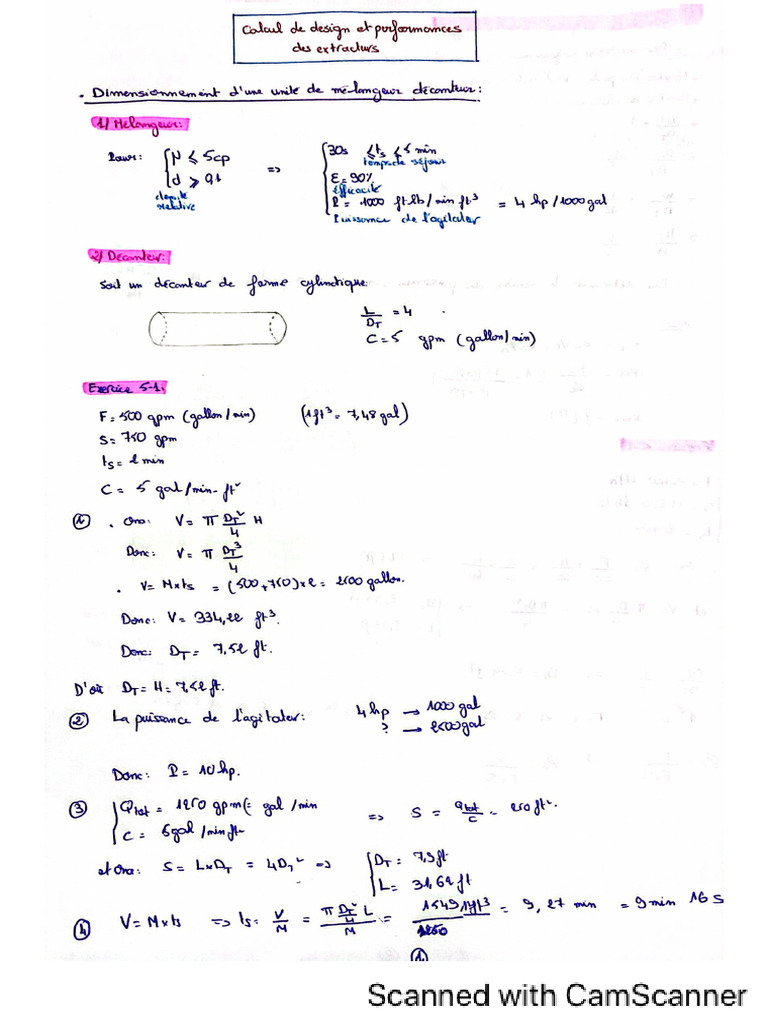 Calcul de design et performances
des extracteurs
. Dimensionnement d'une unité de mélangeur décanteur:
1/ Mélangeur:
Pour: { N ≤ 5cp => { 30s ≤ ts ≤ 5 min
temps de séjour
d ≥ 0,1 E = 90%
densité relative efficacité
P = 1000 ft.lb/min ft³ = 4 hp/1000 gal
Puissance de l'agitateur
2/ Décanteur:
Soit un décanteur de forme cylindrique:
L/DT = 4
C = 5 gpm (gallon/min)
Exercice 5-1.
F = 500 gpm (gallon/min) (1ft³ = 7,48 gal)
S = 750 gpm
ts = 2 min
C = 5 gal/min-ft²
① . Ona: V = π DT²/4 H
Donc: V = π DT³/4
. V = M×ts = (500+750)×2 = 2500 gallon.
Donc: V = 334,22 ft³.
Donc: DT = 7,52 ft.
D'où DT = H = 7,52 ft.
② La puissance de l'agitateur: 4 hp → 1000 gal
? → 2500 gal
Donc: P = 10 hp.
③ { Qtot = 1250 gpm (= gal/min
C = 5 gal/min ft² => S = Qtot/C = 250 ft².
et Ona: S = L×DT = 4DT² => { DT = 7,9 ft
L = 31,62 ft
④ V = M×ts => ts = V/M = π DT²/4 L / M = 1549,1 ft³ / 1250 = 9,27 min = 9 min 16 s
①
Scanned with CamScanner